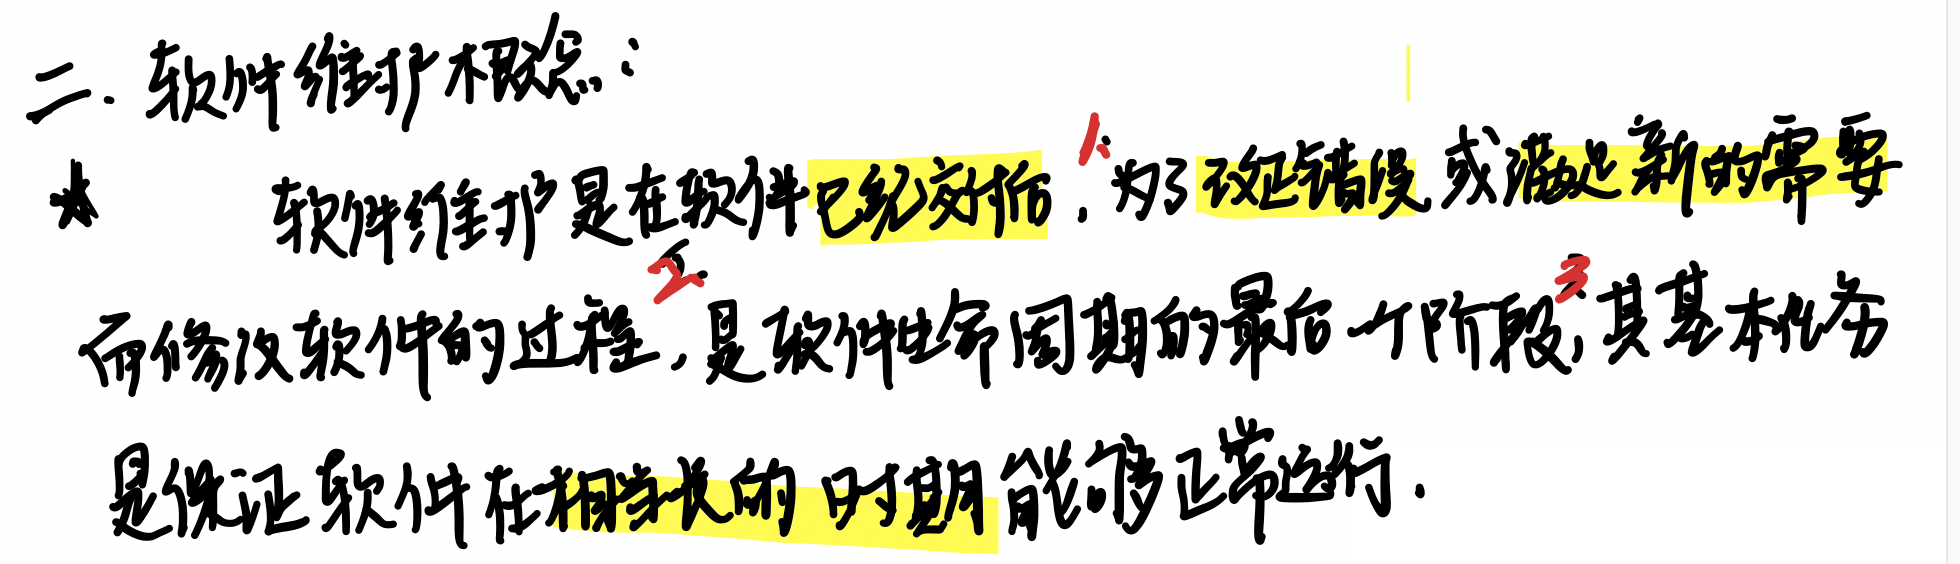 二. 软件维护概念:
★ 软件维护是在软件已经交付后, 1. 为了改正错误或满足新的需要
而修改软件的过程, 2. 是软件生命周期的最后一个阶段, 3 其基本任务
是保证软件在相当长的时期能够正常运行.